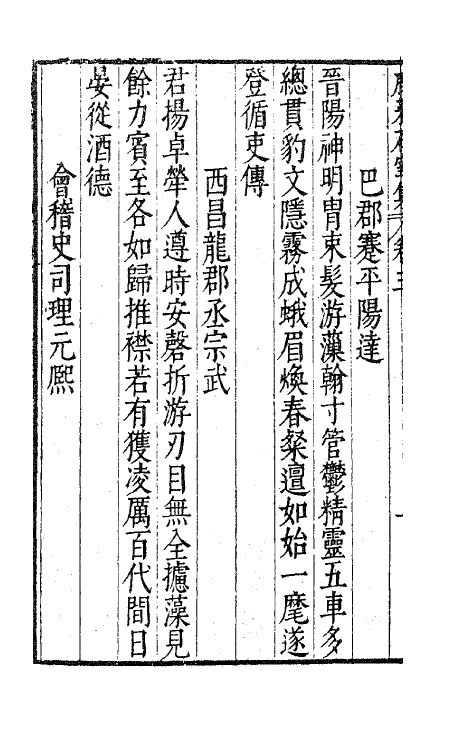 巴郡蹇平陽達
晉陽神明胄束髮游藻翰寸管鬱精靈五車多
總貫豹文隱霧成蛾眉煥春粲邅如始一麾遂
登循吏傳
西昌龍郡丞宗武
君揚卓犖人遵時安磬折游刃目無全攄藻見
餘力賓至各如歸推襟若有獲凌厲百代間日
晏從酒德
會稽史司理元熈